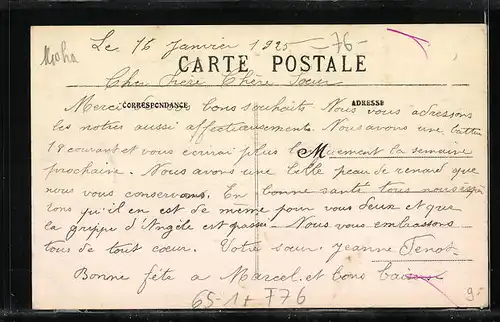 Moha
Le 16 Janvier 1925 -76-
CARTE POSTALE
Cher frère Chère Soeur
CORRESPONDANCE
ADRESSE
Merci de vos bons souhaits Nous vous adressons
les notres aussi affectueusement. Nous avons une battue
18 courant et vous écrirai plus l Muement la semaine
prochaine. Nous avons une belle peau de renard que
nous vous conservons. En bonne santé tous nous espé
rons qu'il en est de même pour vous deux et que
la grippe d'Angèle est passée - Nous vous embrassons
tous de tout coeur. Votre soeur Jeanne Tenot
Bonne fête a Marcel et bons baisers
65-1+ F76
9-